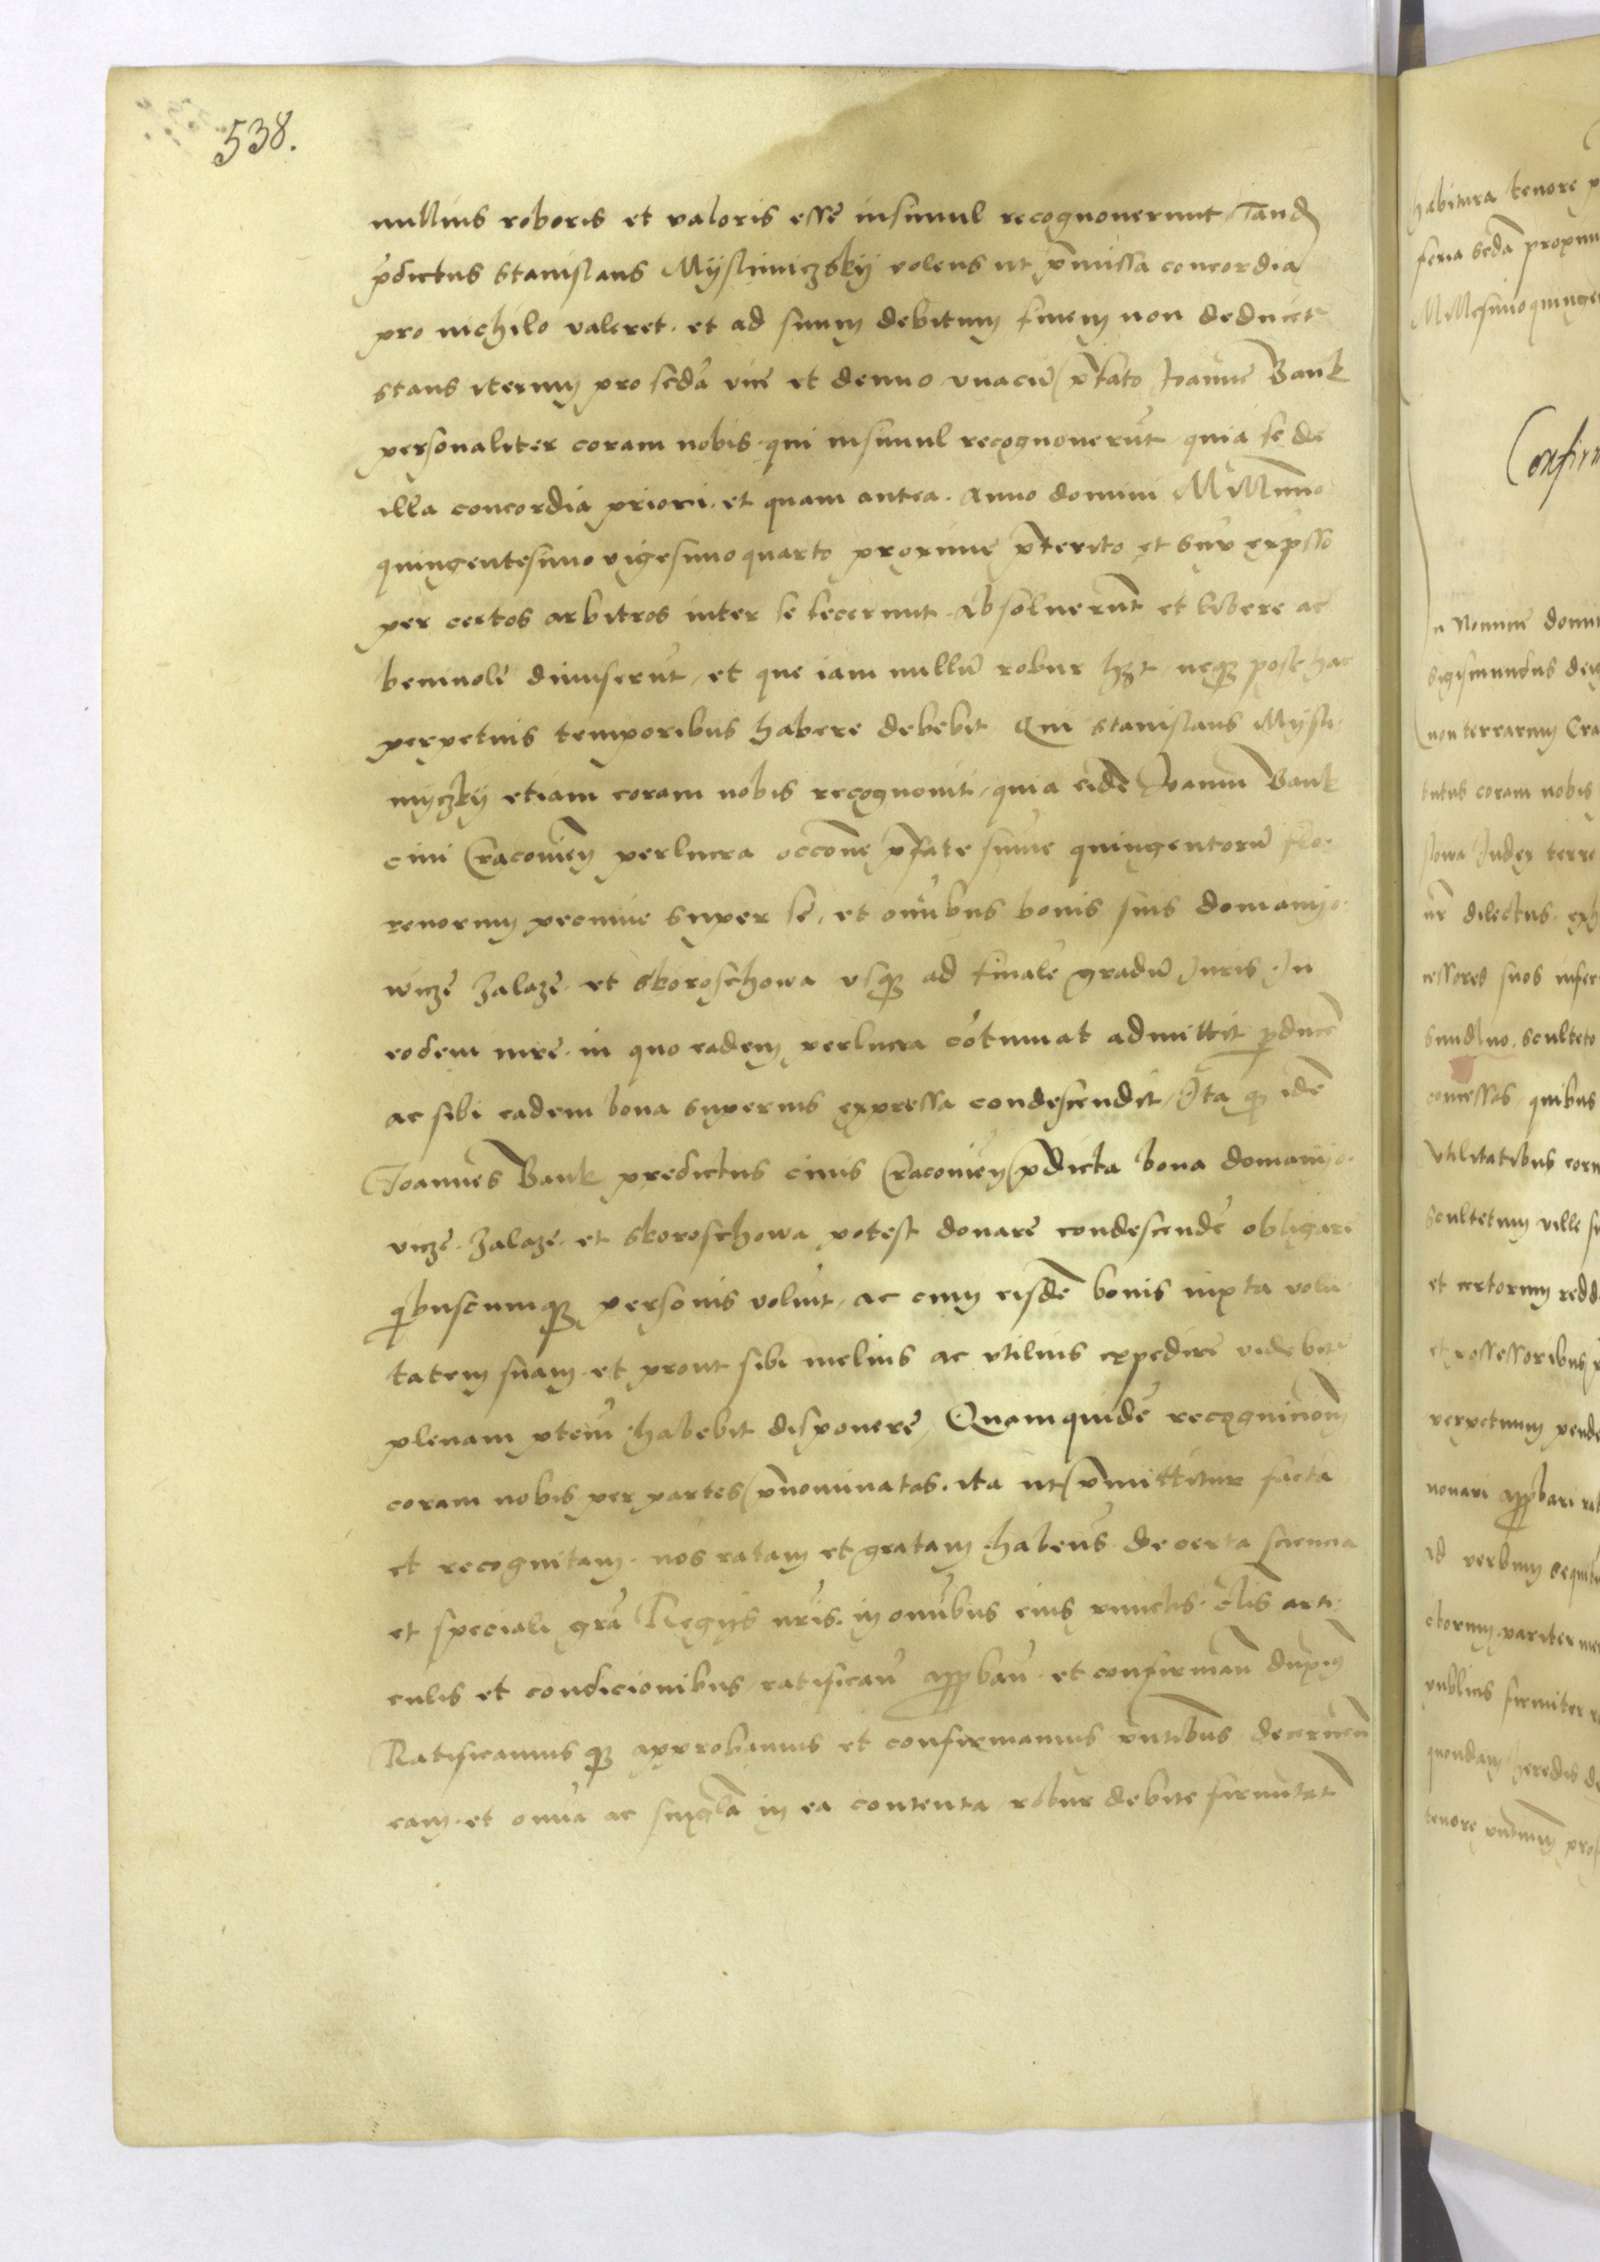 538.
nullius roboris et valoris esse insimul recognoverunt Tandē
p̄dictus Stanislaus Myslimiczskij volens ut p̄missa concordia
pro nichilo valeret. et ad suum debitum finem non deducet̄
stans iterum pro scdā vice et denuo unacū p̄fato Joanne Bank
personaliter coram nobis qui insimul recognoverūt quia se de
illa concordia priori. et quam antea. Anno domini Millmo
quingentesimo vigesimo quarto proxime p̄terito et sup̄ exp̄sso
per certos arbitros inter se fecerunt. absolverunt et libere ac
benivole dimiserūt, et que iam nullū robur hēt neqz post hac
perpetuis temporibus habere debebit Qui Stanislaus Mysli
myczkij etiam coram nobis recognovit, quia eidē Joanni Bank
civi Cracovien̄ perlucra occōne p̄fate sūme quingentorū flo.
renorum pecunie super se, et oīnibus bonis suis domanijo.
wicze zalaze. et Skoroschowa usqz ad finale gradū Juris. In
eodem iure. in quo eadem perlucra cōtinuat admittit p̄ducē
ac sibi eadem bona superius expressa condescendit, Ita q idē
Joannes Bank predictus civis Cracovien̄ p̄dicta bona domanijo.
vicze. Zalaze. et Skoroschowa potest donare condescendē obligare
q̄buscumqz personis voluit, ac cum eisdē bonis iuxta volū
tatem suam. et prout sibi melius ac utilius expedire videbit̄
plenam ptātem habebit disponere, Quamquidē recognicionē
coram nobis per partes p̄nominatas. ita ut p̄mittitur facta
et recognitam. nos ratam et gratam habens. de certa sciencia
et speciali grā Regijs nr̄is. in omībus eius punctis. clīs arti.
culis et condicionibus ratificanū app̄banū et confirmanū duxim̄
Ratificamus qz approbamus et confirmamus p̄ntibus decernen̄
eam. et omīa ac singlā in ea contenta robur debite firmitat̄
habitura tenore
feria scdā proxim
Millesimo quinge
Confirm
n Nomine domi
Sigismundus dei
non terrarum Cra
tutus coram nobis
Judex terre
nr̄ dilectus. exh
cessores suos infer
sculteto
concessas quibus
utilitatibus
Scultetum ville
et certorum redd
et possessoribus
perpetuum
app̄bari
ad verbum sequit
pariter
publius firmiter
quondam heredis d
tenore p̄ntium